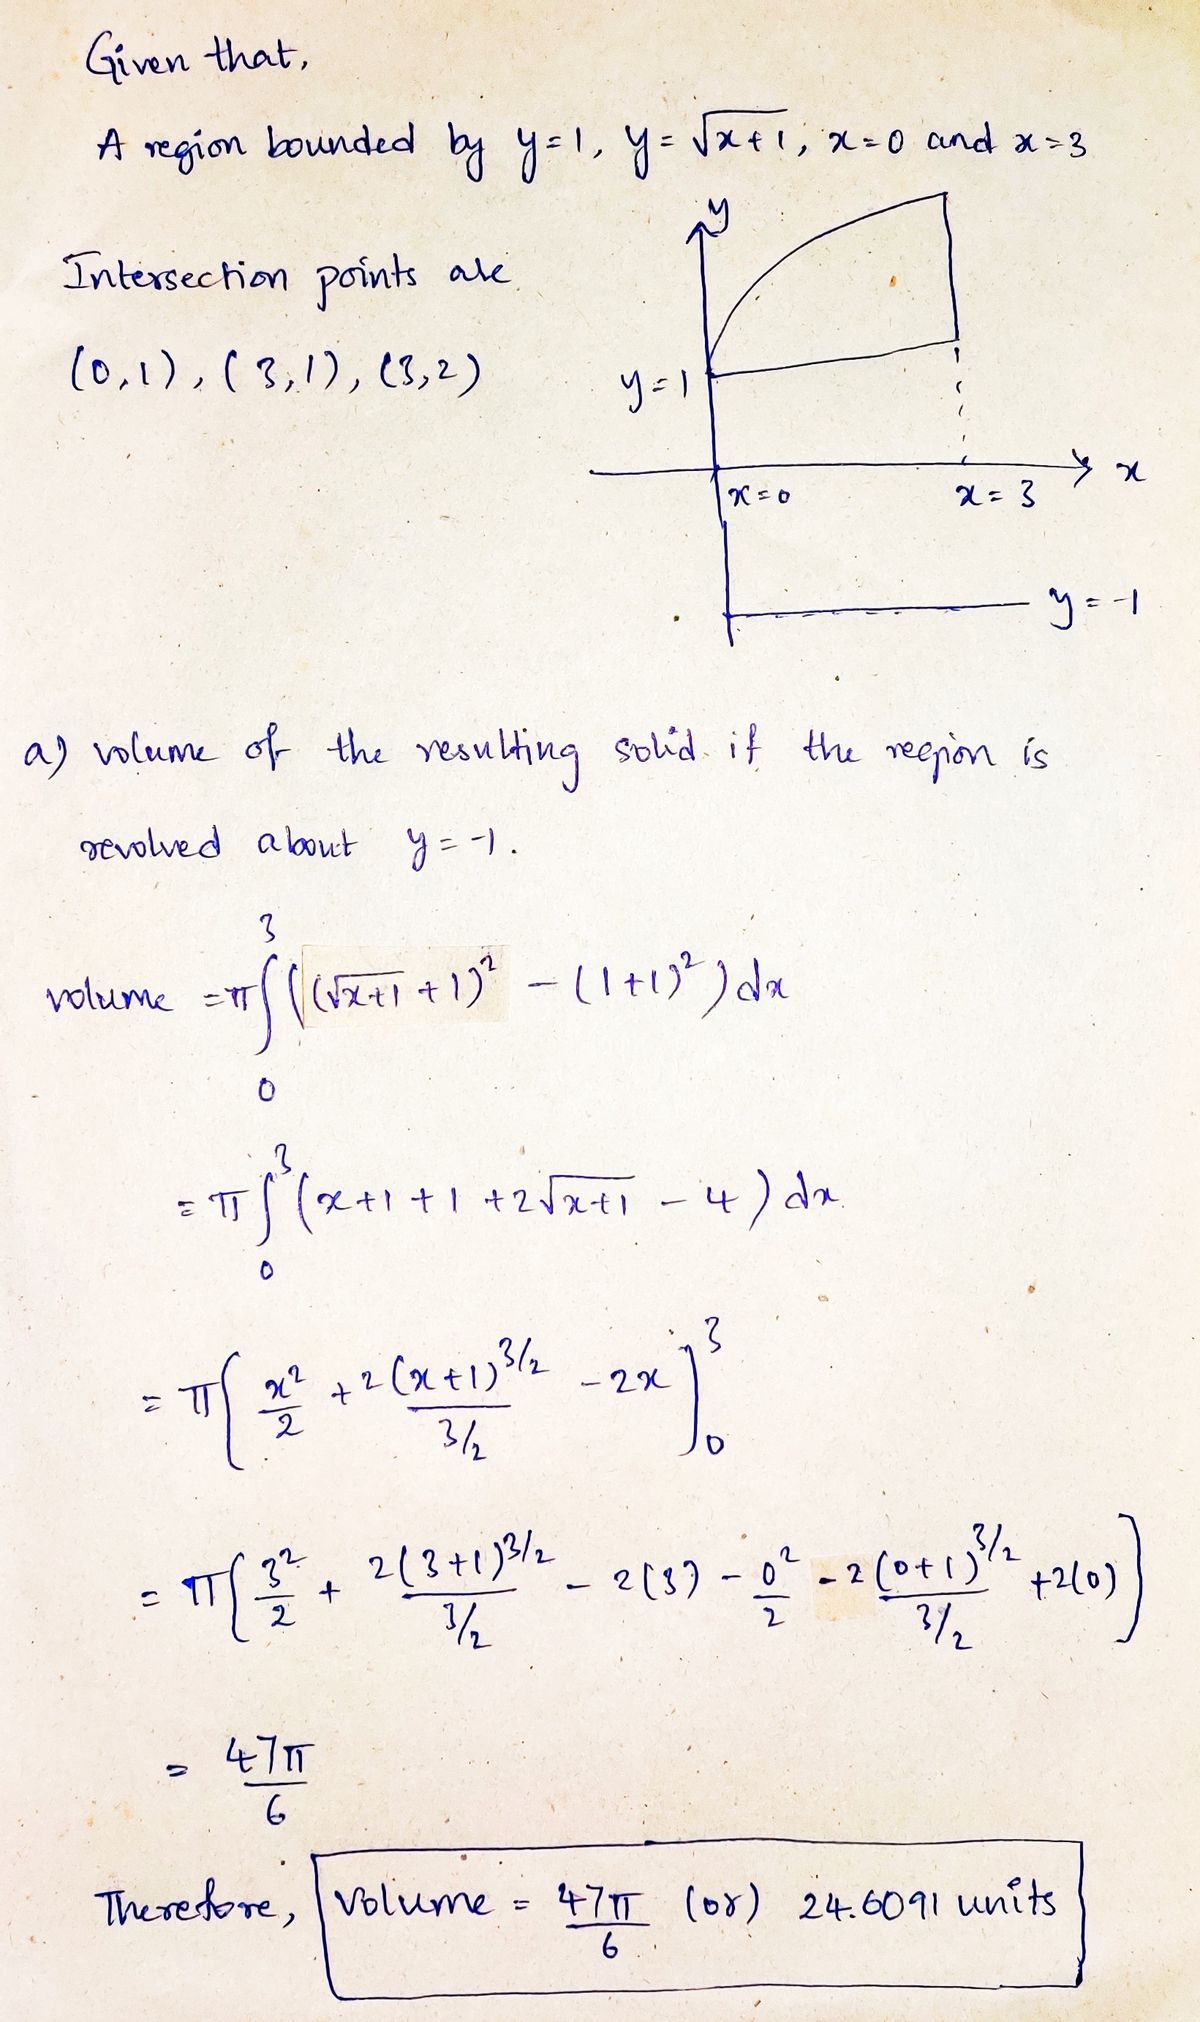 Given that,
A region bounded by y=1, y=√(x+1), x=0 and x=3
y
Intersection points are
(0,1), (3,1), (3,2)
y=1
x
x=0
x=3
y=-1
a) volume of the resulting solid if the reegion is
revolved about y=-1.
volume = π∫₀³ ((√(x+1) + 1)² - (1+1)²) dx
= π∫₀³ (x+1+1+2√(x+1) - 4) dx
= π[x²/2 + 2(x+1)^(3/2)/(3/2) - 2x]₀³
= π[3²/2 + 2(3+1)^(3/2)/(3/2) - 2(3) - 0²/2 - 2(0+1)^(3/2)/(3/2) + 2(0)]
= 47π/6
Therefore, Volume = 47π/6 (or) 24.6091 units